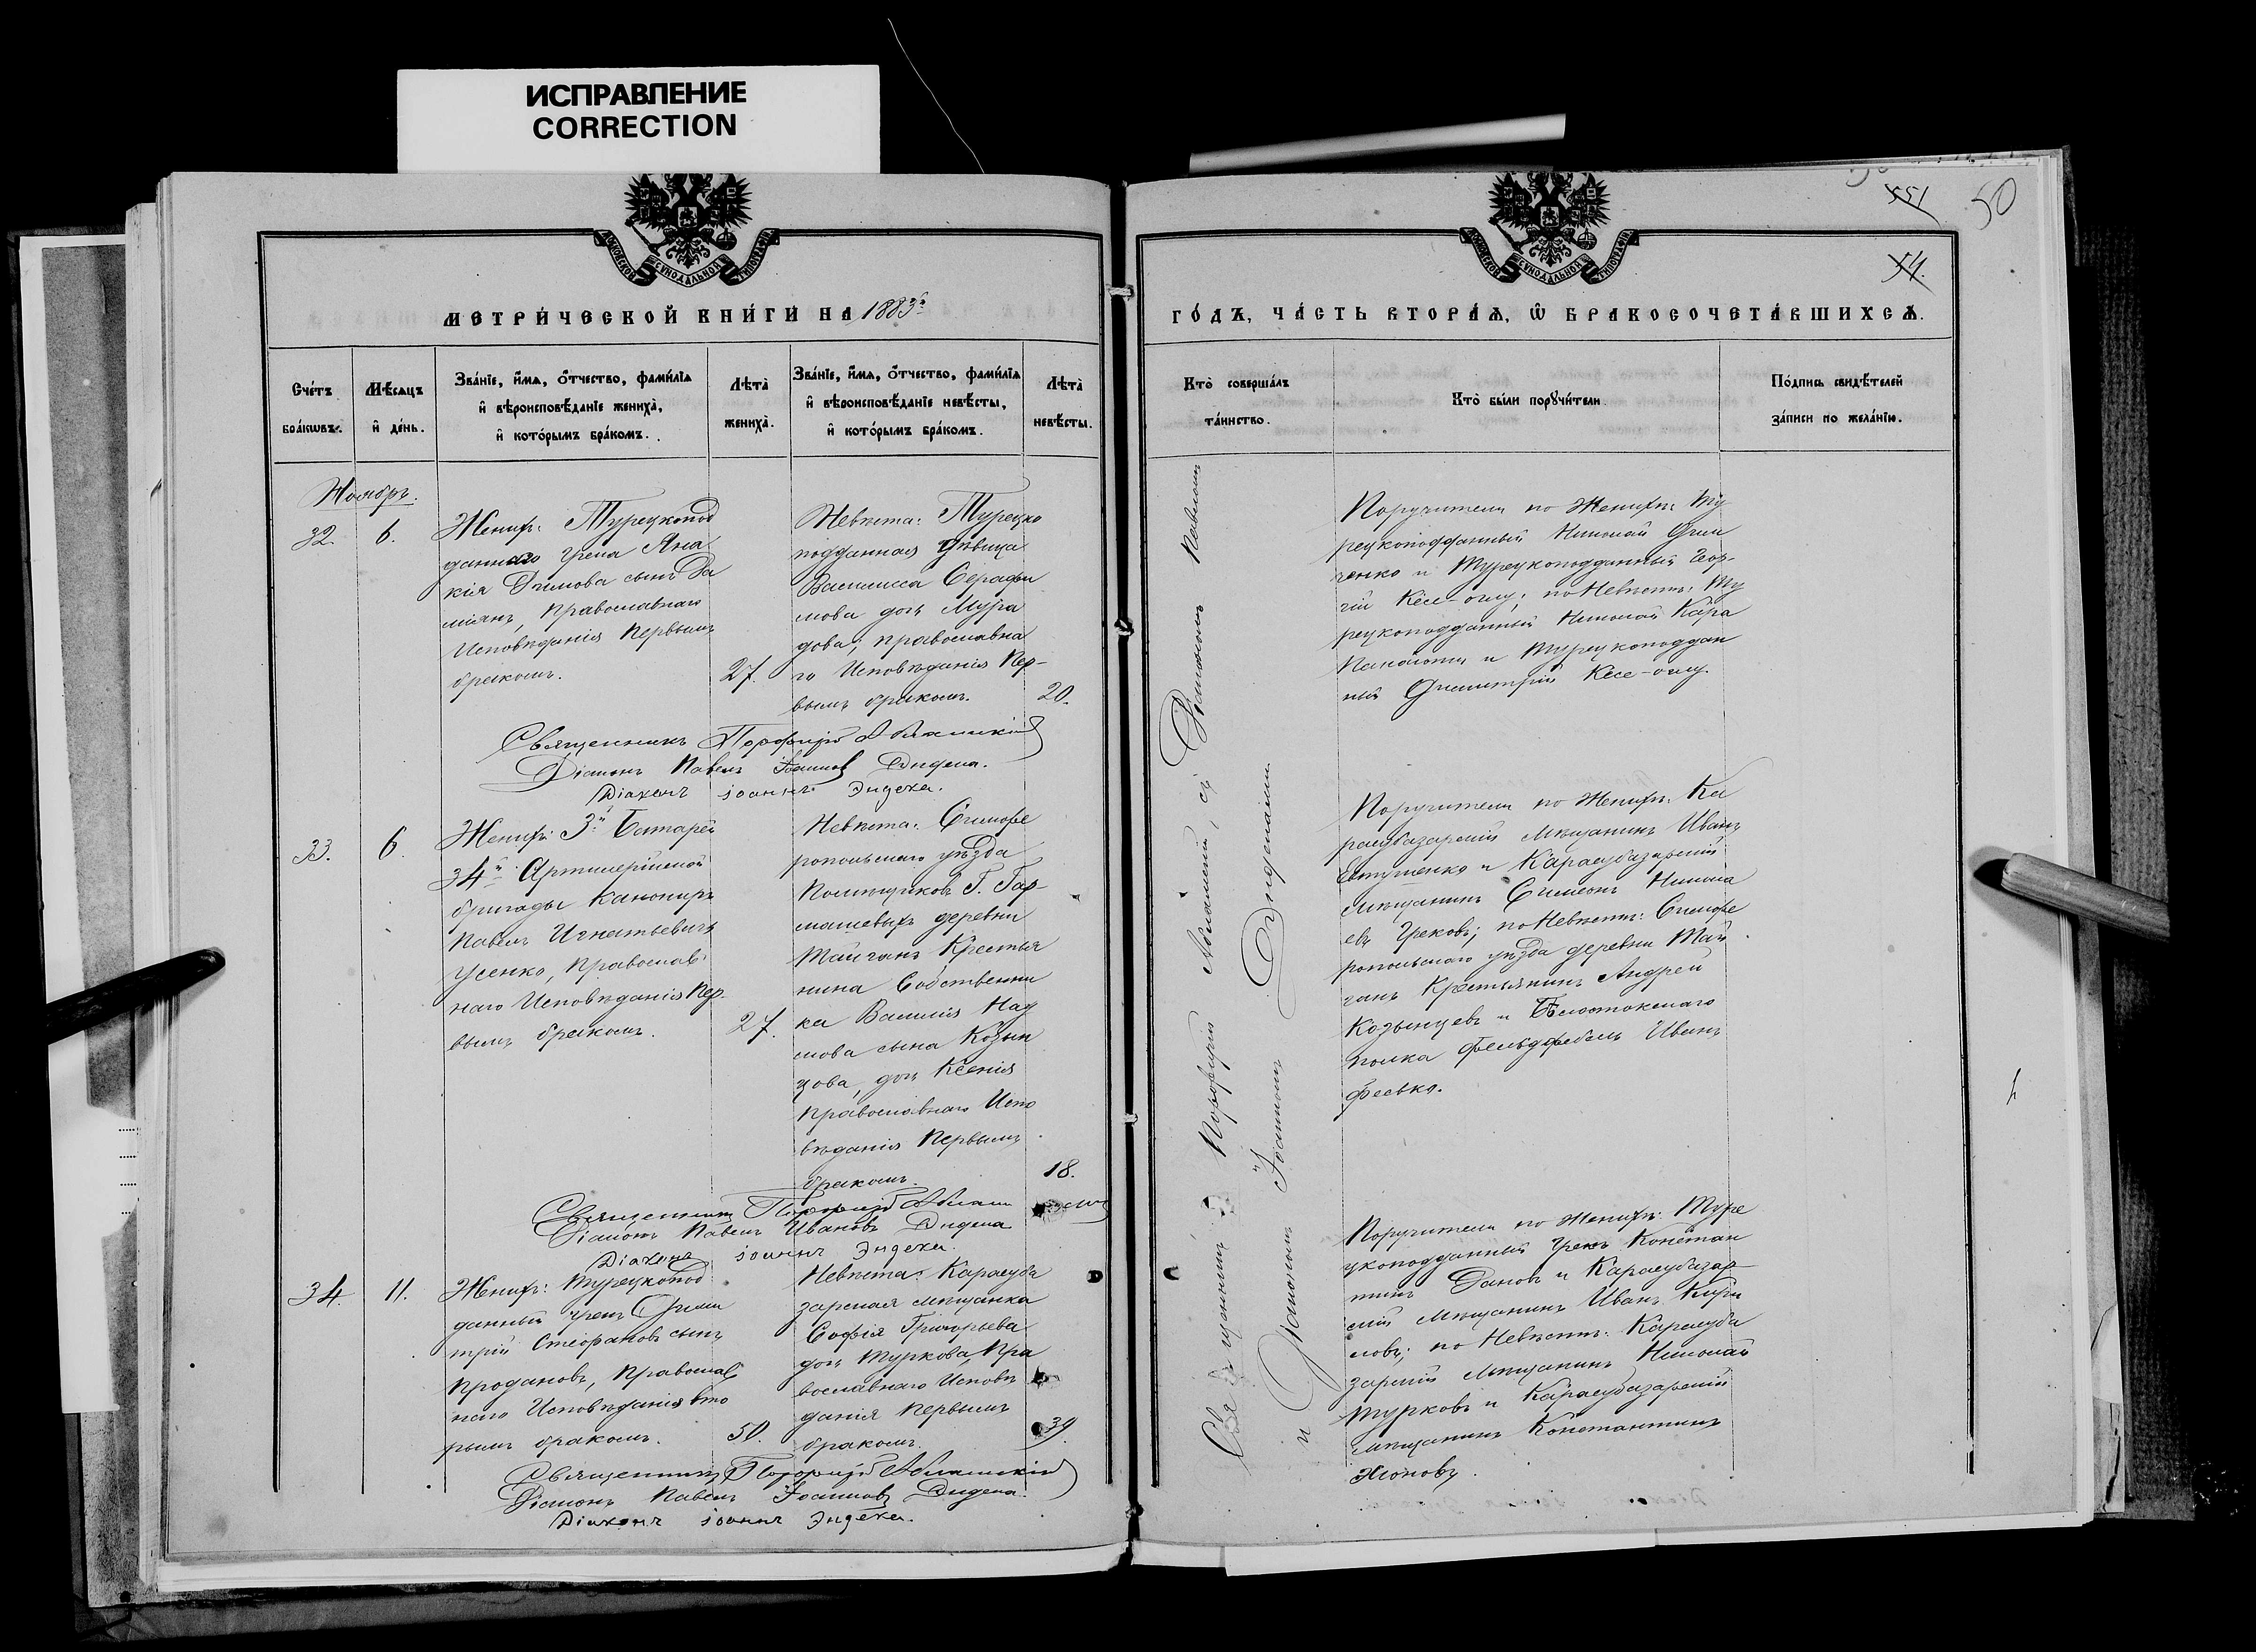 ИСПРАВЛЕНИЕ
CORRECTION
МОСКОВСКОЙ СѴНОДАЛЬНОЙ ТИПОГРАФІИ
МЕТРИ́ЧЕСКОЙ КНИ́ГИ НА 1883й
Сче́тъ бра́кωвъ.
Мѣ́сяцъ и҆ де́нь.
Зва́нїе, и҆́мѧ, ѻ҆́тчество, фами́лїѧ
и҆ вѣроисповѣ́данїе жениха̀,
и҆ кото́рымъ бра́комъ.
Лѣта̀ жениха̀.
Зва́нїе, и҆́мѧ, ѻ҆́тчество, фами́лїѧ
и҆ вѣроисповѣ́данїе невѣ́сты,
и҆ кото́рымъ бра́комъ.
Лѣта̀ невѣ́сты.
Ноябрь.
32.
6.
Женихъ: Турецкопод
даннаго грека Яна
кія Димова сынъ Да
міянъ, Православнаго
Исповѣданія Первымъ
бракомъ.
27.
Невѣста: Турецко
подданная дѣвица
Василисса Серафи
мова дочь Мура
дова, православна
го Исповѣданія Пер-
вымъ бракомъ.
20.
Священникъ Порфирій
Діаконъ Павелъ Іоанновъ Эндека.
Діаконъ іоаннъ Эндека.
33.
6.
Женихъ: 3й Батареи
34й Артиллерійской
бригады Канониръ
Павелъ Игнатьевичъ
Усенко, Православ
наго Исповѣданія Пер-
вымъ бракомъ.
27.
Невѣста: Симфе
ропольскаго уѣзда
Помѣщиковъ Г. Гар-
машевыхъ деревни
Тайганъ Крестья
нина Собственни
ка Василія Нау
мова сына Козын
цова, дочь Ксенія
Православнаго Испо
вѣданія Первымъ
бракомъ.
18.
Священникъ Порфирій
Діаконъ Павелъ Ивановъ Эндека
Діаконъ іоаннъ Эндека.
34.
11.
Женихъ: Турецкопод
данный Грекъ Дими
трій Стефановъ сынъ
Продановъ, Православ
наго Исповѣданія вто
рымъ бракомъ.
50.
Невѣста: Карасуба
зарская мѣщанка
Софія Григорьева
дочь Туркова, Пра
вославнаго Исповѣ
данія Первымъ
бракомъ.
39.
Священникъ Порфирій
Діаконъ Павелъ Іоанновъ Эндека.
Діаконъ іоаннъ Эндека.
551
50
54.
МОСКОВСКОЙ СѴНОДАЛЬНОЙ ТИПОГРАФІИ
ГО́ДЪ, ЧА́СТЬ ВТОРА́Ѧ, Ѽ БРАКОСОЧЕТА́ВШИХСѦ.
Кто̀ соверша́лъ
та́инство.
Кто̀ бы́ли порꙋчи́тели.
По́дпись свидѣ́телей
за́писи по жела́нїю.
Священникъ Порфирій съ Діакономъ Павломъ
и Діакономъ Іоанномъ Эндеками
Поручители по Женихѣ: Ту
рецкоподданный Николай Дими
ченко и Турецкоподданный Геор-
гій Кесе-оглу; по Невѣстѣ: Ту
рецкоподданный Николай Кара
Панаіоти и Турецкоподдан
ный Димитрій Кесе-оглу.
Поручители по Женихѣ: Ка
расубазарскій Мѣщанинъ Иванъ
Евтушенко и Карасубазарскій
Мѣщанинъ Симеонъ Никола
евъ Грековъ; по Невѣстѣ: Симфе
ропольскаго уѣзда деревни Тай
ганъ Крестьянинъ Андрей
Козынцевъ и Бѣлостокскаго
полка Фельдфебель Иванъ
Феевко.
Поручители по Женихѣ: Туре
цкоподданный Грекъ Констан
тинъ Дановъ и Карасубазар-
скій Мѣщанинъ Иванъ Кири
ловъ; по Невѣстѣ: Карасуба
зарскій Мѣщанинъ Николай
Турковъ и Карасубазарскій
Мѣщанинъ Константинъ
Хіоновъ.